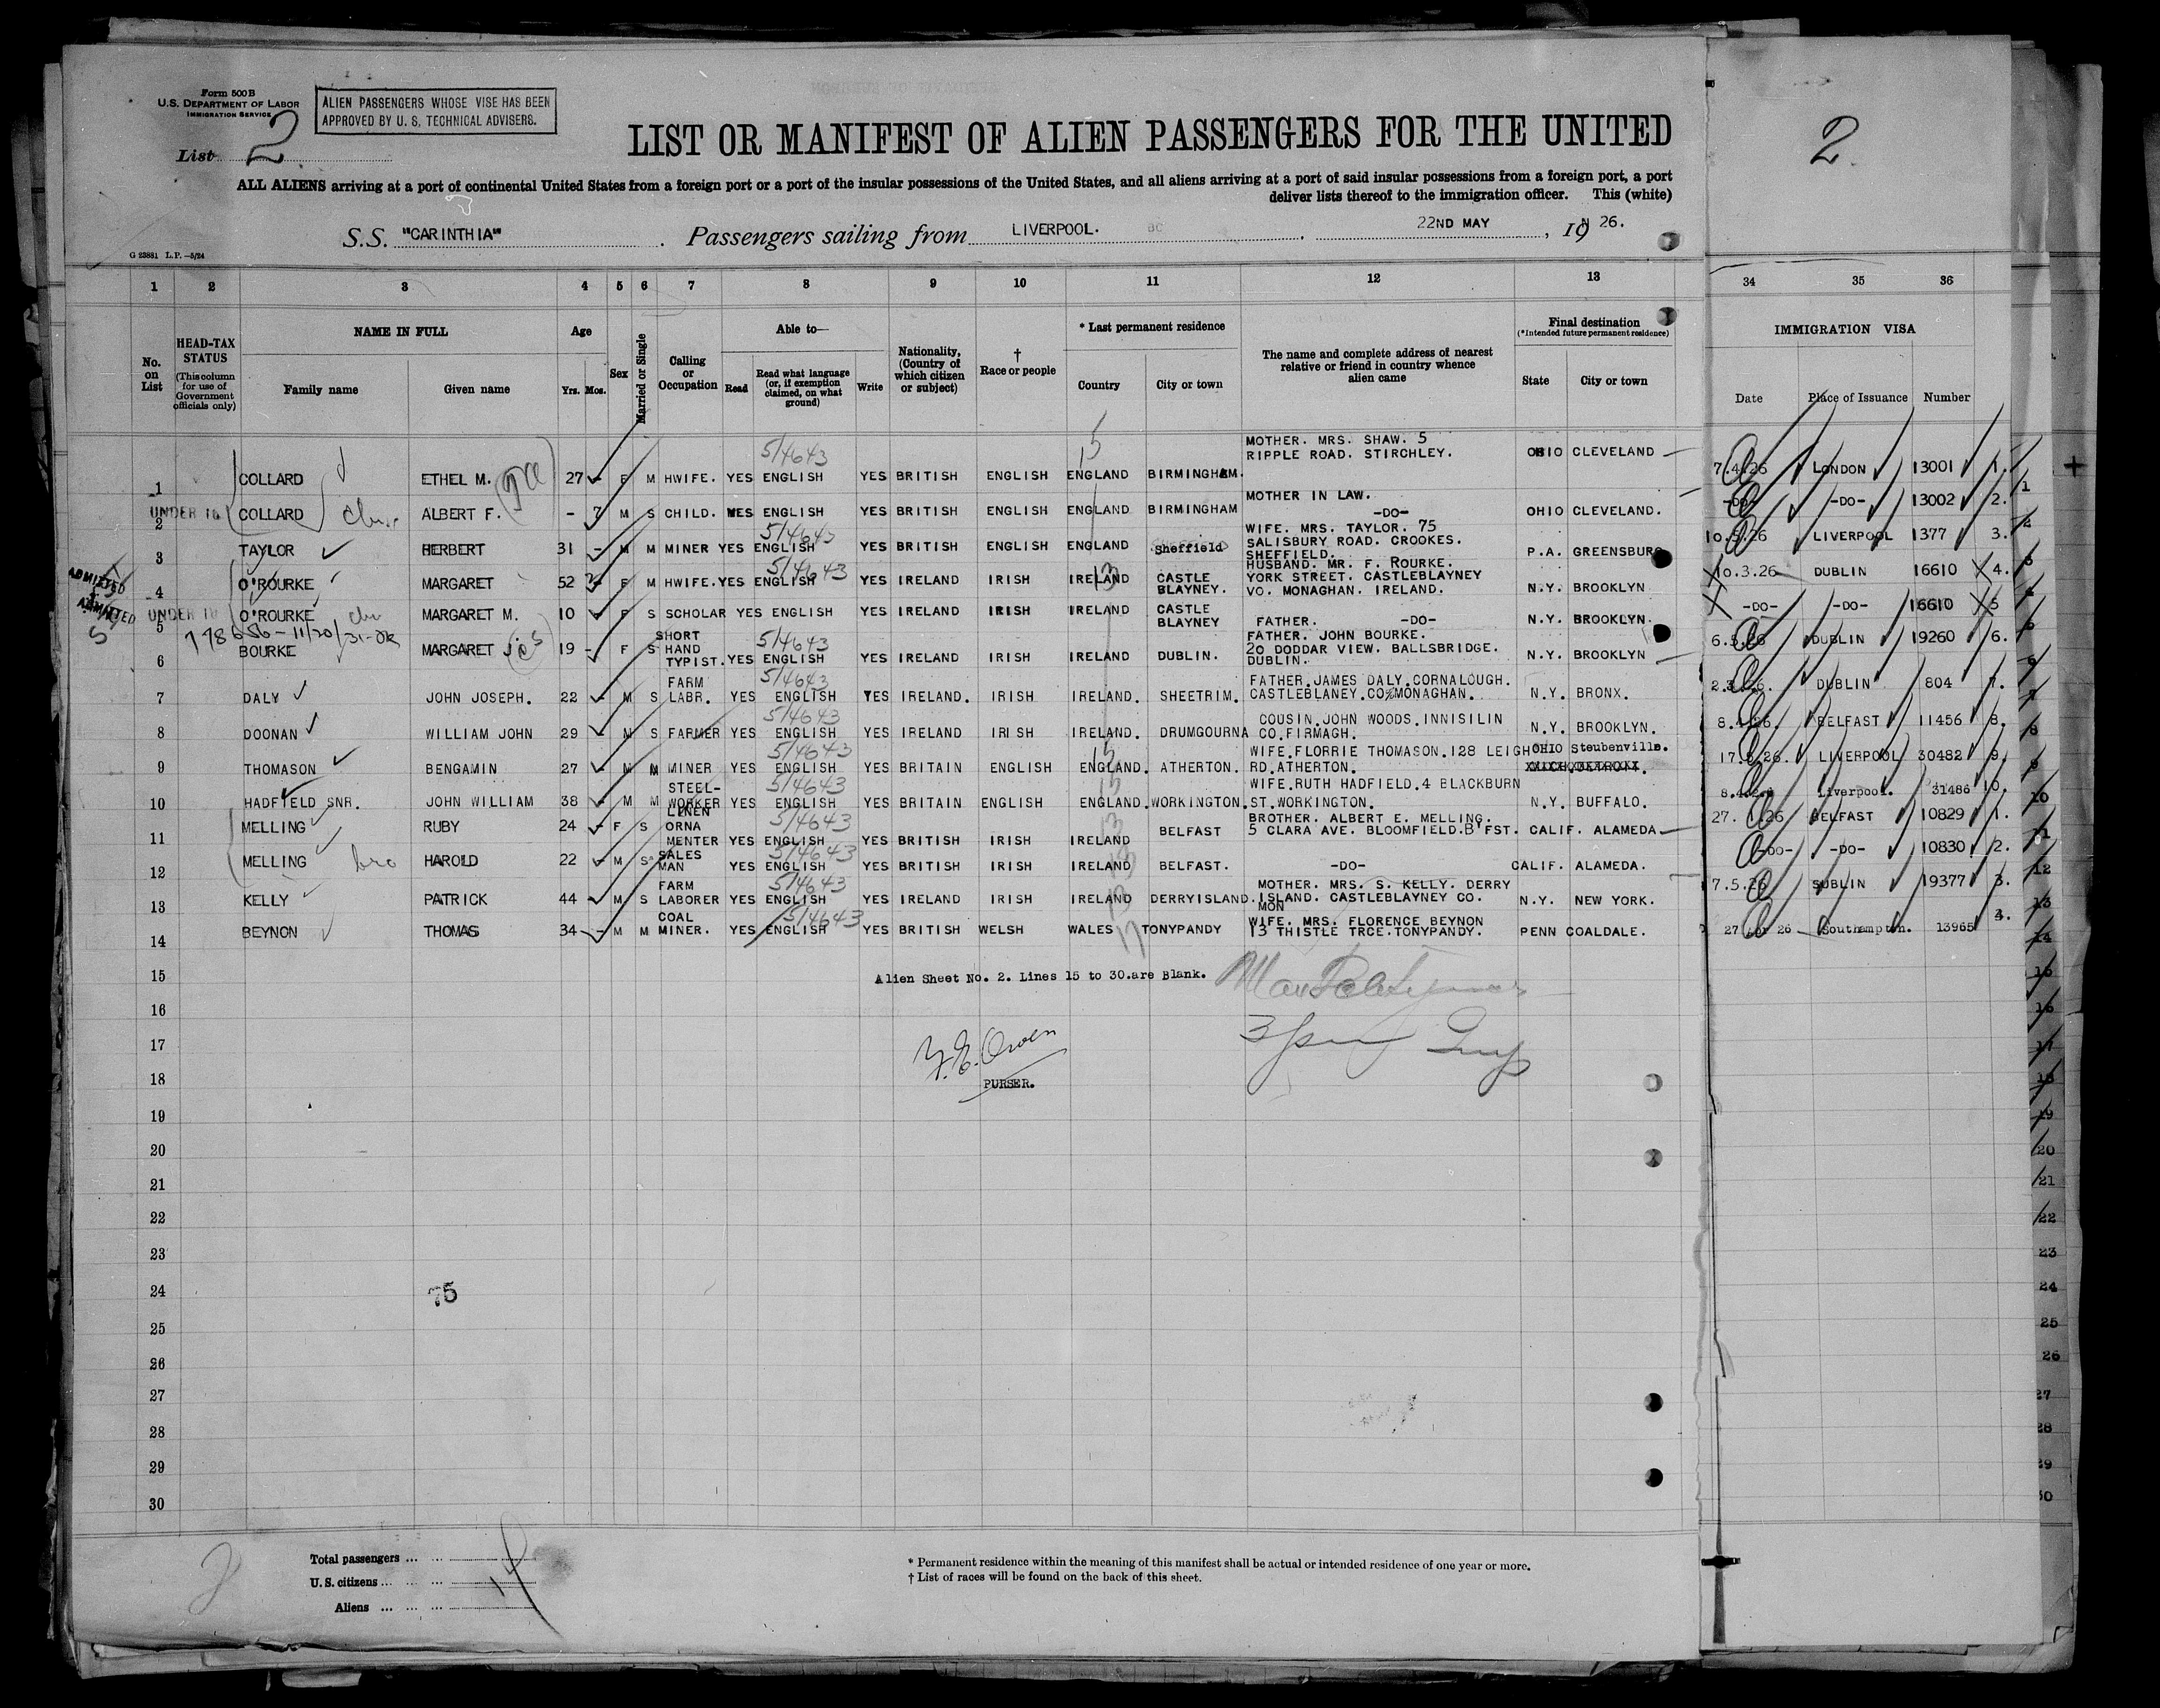 Form 500 B
U.S. DEPARTMENT OF LABOR
IMMIGRATION SERVICE
ALIEN PASSENGERS WHOSE VISE HAS BEEN
APPROVED BY U. S. TECHNICAL ADVISERS.
List 2
2
LIST OR MANIFEST OF ALIEN PASSENGERS FOR THE UNITED
ALL ALIENS arriving at a port of continental United States from a foreign port or a port of the insular possessions of the United States, and all aliens arriving at a port of said insular possessions from a foreign port, a port
deliver lists thereof to the immigration officer. This (white)
S.S. "CARINTHIA" . Passengers sailing from LIVERPOOL. , 22ND MAY , 19 26.
G 23881 L.P. —5/24
1 2 3 4 5 6 7 8 9 10 11 12 13 34 35 36
No. on List
HEAD-TAX STATUS
(This column for use of Government officials only)
NAME IN FULL
Family name Given name
Age
Yrs. Mos.
Sex
Married or Single
Calling or Occupation
Able to—
Read
Read what language (or, if exemption claimed, on what ground)
Write
Nationality, (Country of which citizen or subject)
† Race or people
* Last permanent residence
Country City or town
The name and complete address of nearest relative or friend in country whence alien came
Final destination
(*Intended future permanent residence)
State City or town
IMMIGRATION VISA
Date Place of Issuance Number
1 COLLARD ETHEL M. 27 - F M HWIFE. YES ENGLISH YES BRITISH ENGLISH ENGLAND BIRMINGHAM. MOTHER. MRS. SHAW. 5 RIPPLE ROAD. STIRCHLEY. OHIO CLEVELAND 7.4.26 LONDON 13001 1.
5/4643
UNDER 16
2 COLLARD ALBERT F. - 7 M S CHILD. YES ENGLISH YES BRITISH ENGLISH ENGLAND BIRMINGHAM MOTHER IN LAW. -DO- OHIO CLEVELAND. -DO- -DO- 13002 2.
5/4643
3 TAYLOR HERBERT 31 - M M MINER YES ENGLISH YES BRITISH ENGLISH ENGLAND Sheffield WIFE. MRS. TAYLOR. 75 SALISBURY ROAD. CROOKES. SHEFFIELD. P.A. GREENSBURG 10.5.26 LIVERPOOL 1377 3.
ADMITTED
5/4643
4 O'ROURKE MARGARET 52 - F M HWIFE. YES ENGLISH YES IRELAND IRISH IRELAND CASTLE BLAYNEY. HUSBAND. MR. F. ROURKE. YORK STREET. CASTLEBLAYNEY VO. MONAGHAN. IRELAND. N.Y. BROOKLYN 10.3.26 DUBLIN 16610 4.
ADMITTED
UNDER 16
5 O'ROURKE MARGARET M. 10 - F S SCHOLAR YES ENGLISH YES IRELAND IRISH IRELAND CASTLE BLAYNEY FATHER. -DO- N.Y. BROOKLYN. -DO- -DO- 16610 5
5/4643
6 BOURKE MARGARET J. 19 - F S SHORT HAND TYPIST. YES ENGLISH YES IRELAND IRISH IRELAND DUBLIN. FATHER. JOHN BOURKE. 20 DODDAR VIEW. BALLSBRIDGE. DUBLIN. N.Y. BROOKLYN 6.5.26 DUBLIN 19260 6.
5/4643
7 DALY JOHN JOSEPH. 22 - M S FARM LABR. YES ENGLISH YES IRELAND. IRISH IRELAND. SHEETRIM. FATHER.JAMES DALY.CORNALOUGH. CASTLEBLANEY.CO MONAGHAN. N.Y. BRONX. DUBLIN 804 7.
5/4643
8 DOONAN WILLIAM JOHN 29 - M S FARMER YES ENGLISH YES IRELAND IRISH IRELAND. DRUMGOURNA COUSIN.JOHN WOODS.INNISILIN CO.FIRMAGH. N.Y. BROOKLYN. 8.4.26. BELFAST 11456 8.
5/4643
9 THOMASON BENGAMIN 27 - M M MINER YES ENGLISH YES BRITAIN ENGLISH ENGLAND. ATHERTON. WIFE.FLORRIE THOMASON.128 LEIGH RD.ATHERTON. OHIO Steubenville. MICH.DETROIT. LIVERPOOL 30482 9.
5/4643
10 HADFIELD SNR. JOHN WILLIAM 38 - M M STEEL- WORKER YES ENGLISH YES BRITAIN ENGLISH ENGLAND. WORKINGTON. WIFE.RUTH HADFIELD.4 BLACKBURN ST.WORKINGTON. N.Y. BUFFALO. Liverpool. 31486 10.
5/4643
11 MELLING RUBY 24 - F S LINEN ORNA MENTER YES ENGLISH YES BRITISH IRISH IRELAND BELFAST BROTHER. ALBERT E. MELLING. 5 CLARA AVE. BLOOMFIELD.B'FST. CALIF. ALAMEDA 27. 1.26 BELFAST 10829 1.
5/4643
12 MELLING bro HAROLD 22 - M S SALES MAN YES ENGLISH YES BRITISH IRISH IRELAND BELFAST. -DO- CALIF. ALAMEDA. -DO- -DO- 10830 2.
5/4643
13 KELLY PATRICK 44 - M S FARM LABORER YES ENGLISH YES IRELAND IRISH IRELAND DERRYISLAND. MOTHER. MRS. S. KELLY. DERRY ISLAND. CASTLEBLAYNEY CO. MON N.Y. NEW YORK. 7.5.26 SUBLIN 19377 3.
5/4643
14 BEYNON THOMAS 34 - M M COAL MINER. YES ENGLISH YES BRITISH WELSH WALES TONYPANDY WIFE. MRS. FLORENCE BEYNON 13 THISTLE TRCE.TONYPANDY. PENN COALDALE. 27 Apr 26 Southampton. 13965 4.
15 Alien Sheet No. 2. Lines 15 to 30.are Blank.
16
17 F. E. Owen
18 PURSER.
19
20
21
22
23
24 75
25
26
27
28
29
30
Total passengers ... ...
U. S. citizens ... ... ... 14
Aliens ... ... ...
* Permanent residence within the meaning of this manifest shall be actual or intended residence of one year or more.
† List of races will be found on the back of this sheet.